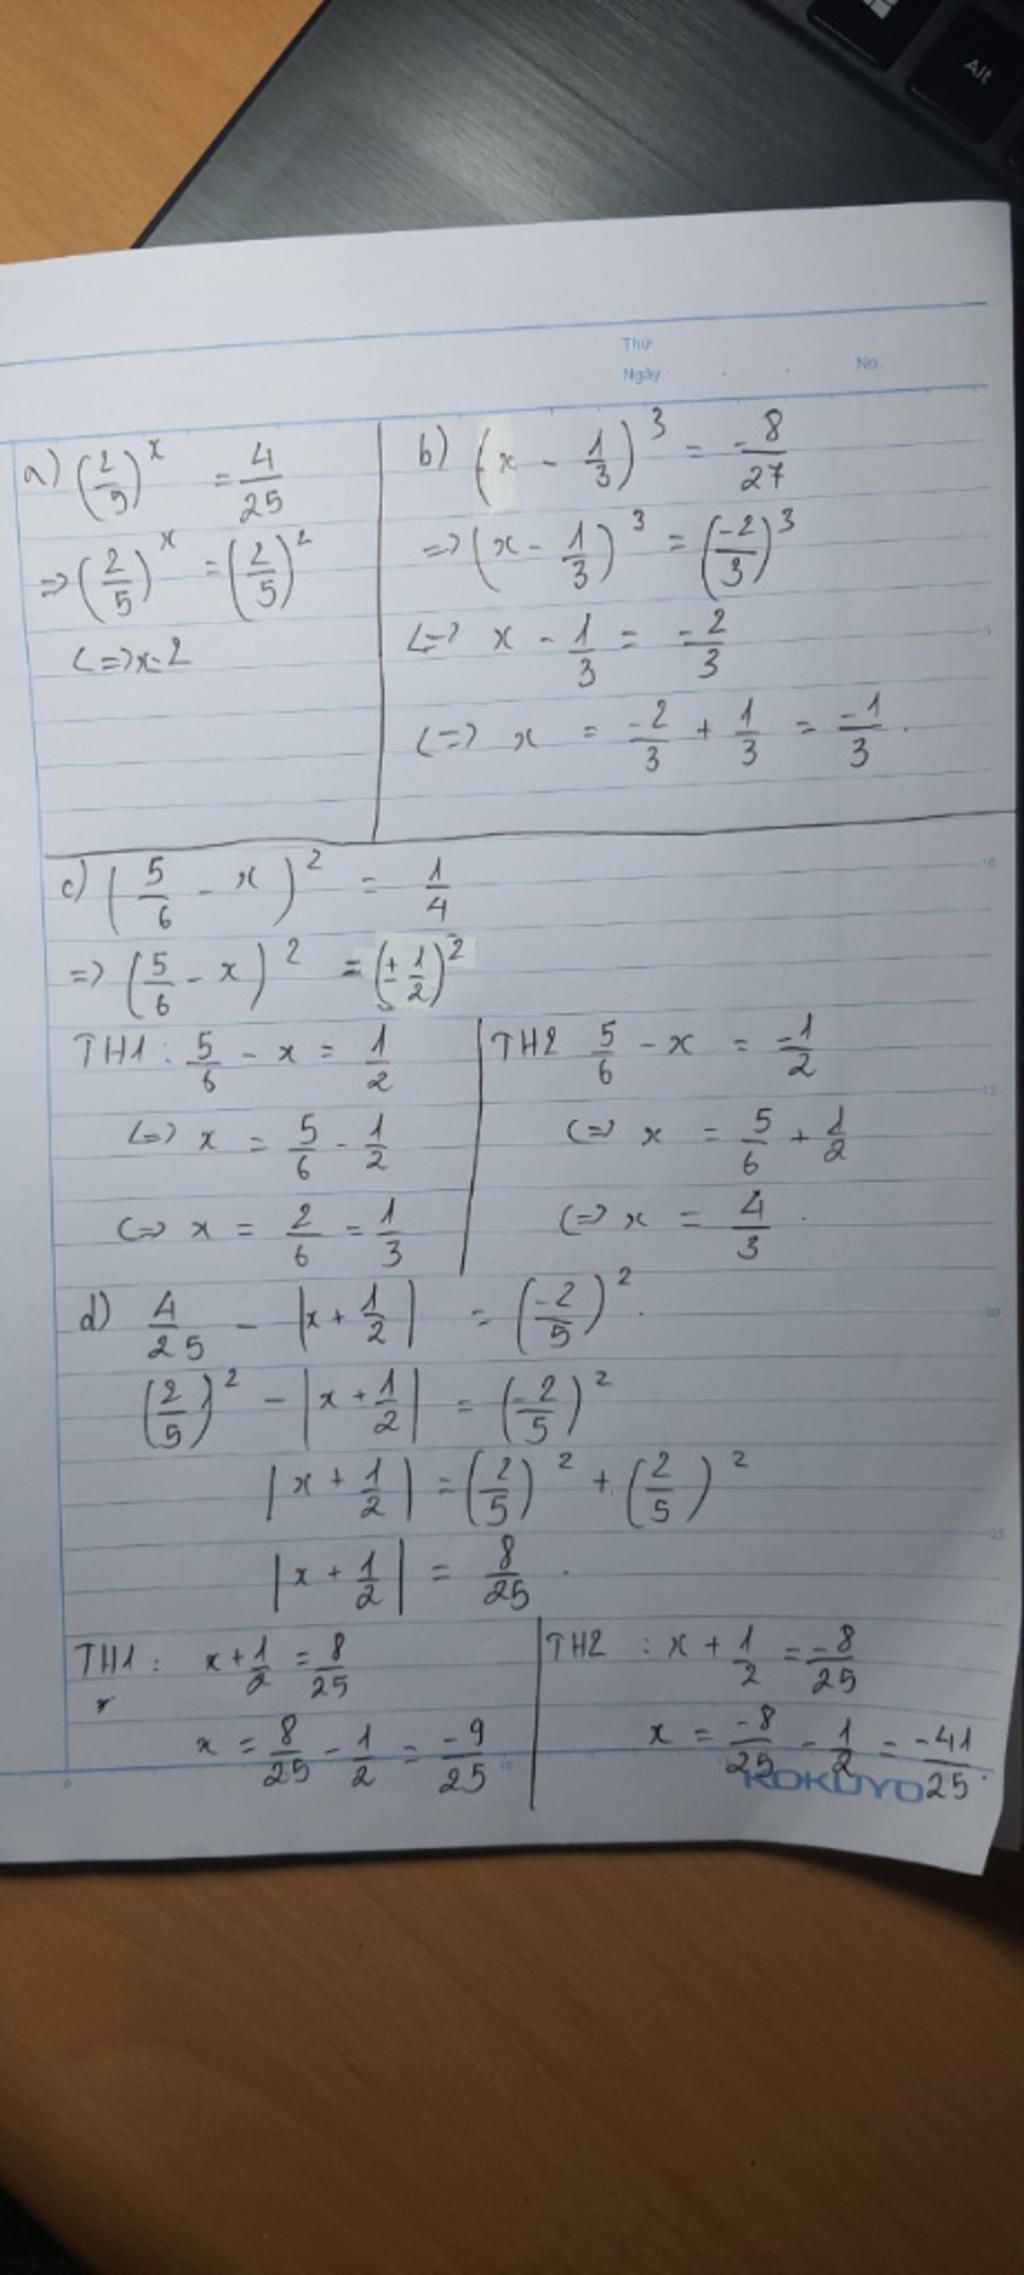 Alt
Thứ
Ngày . . No.
a) (2/5)^x = 4/25
=> (2/5)^x = (2/5)^2
<=> x = 2
b) (x - 1/3)^3 = -8/27
=> (x - 1/3)^3 = (-2/3)^3
<=> x - 1/3 = -2/3
<=> x = -2/3 + 1/3 = -1/3 .
5
c) (5/6 - x)^2 = 1/4
10
=> (5/6 - x)^2 = (± 1/2)^2
TH1 : 5/6 - x = 1/2
<=> x = 5/6 - 1/2
<=> x = 2/6 = 1/3
TH2 5/6 - x = -1/2
15
<=> x = 5/6 + 1/2
<=> x = 4/3 .
d) 4/25 - |x + 1/2| = (-2/5)^2 .
20
(2/5)^2 - |x + 1/2| = (-2/5)^2
|x + 1/2| = (2/5)^2 + (2/5)^2
25
|x + 1/2| = 8/25 .
TH1 : x + 1/2 = 8/25
x = 8/25 - 1/2 = -9/25
TH2 : x + 1/2 = -8/25
x = -8/25 - 1/2 = -41/25 .
0 10
KOKUYO